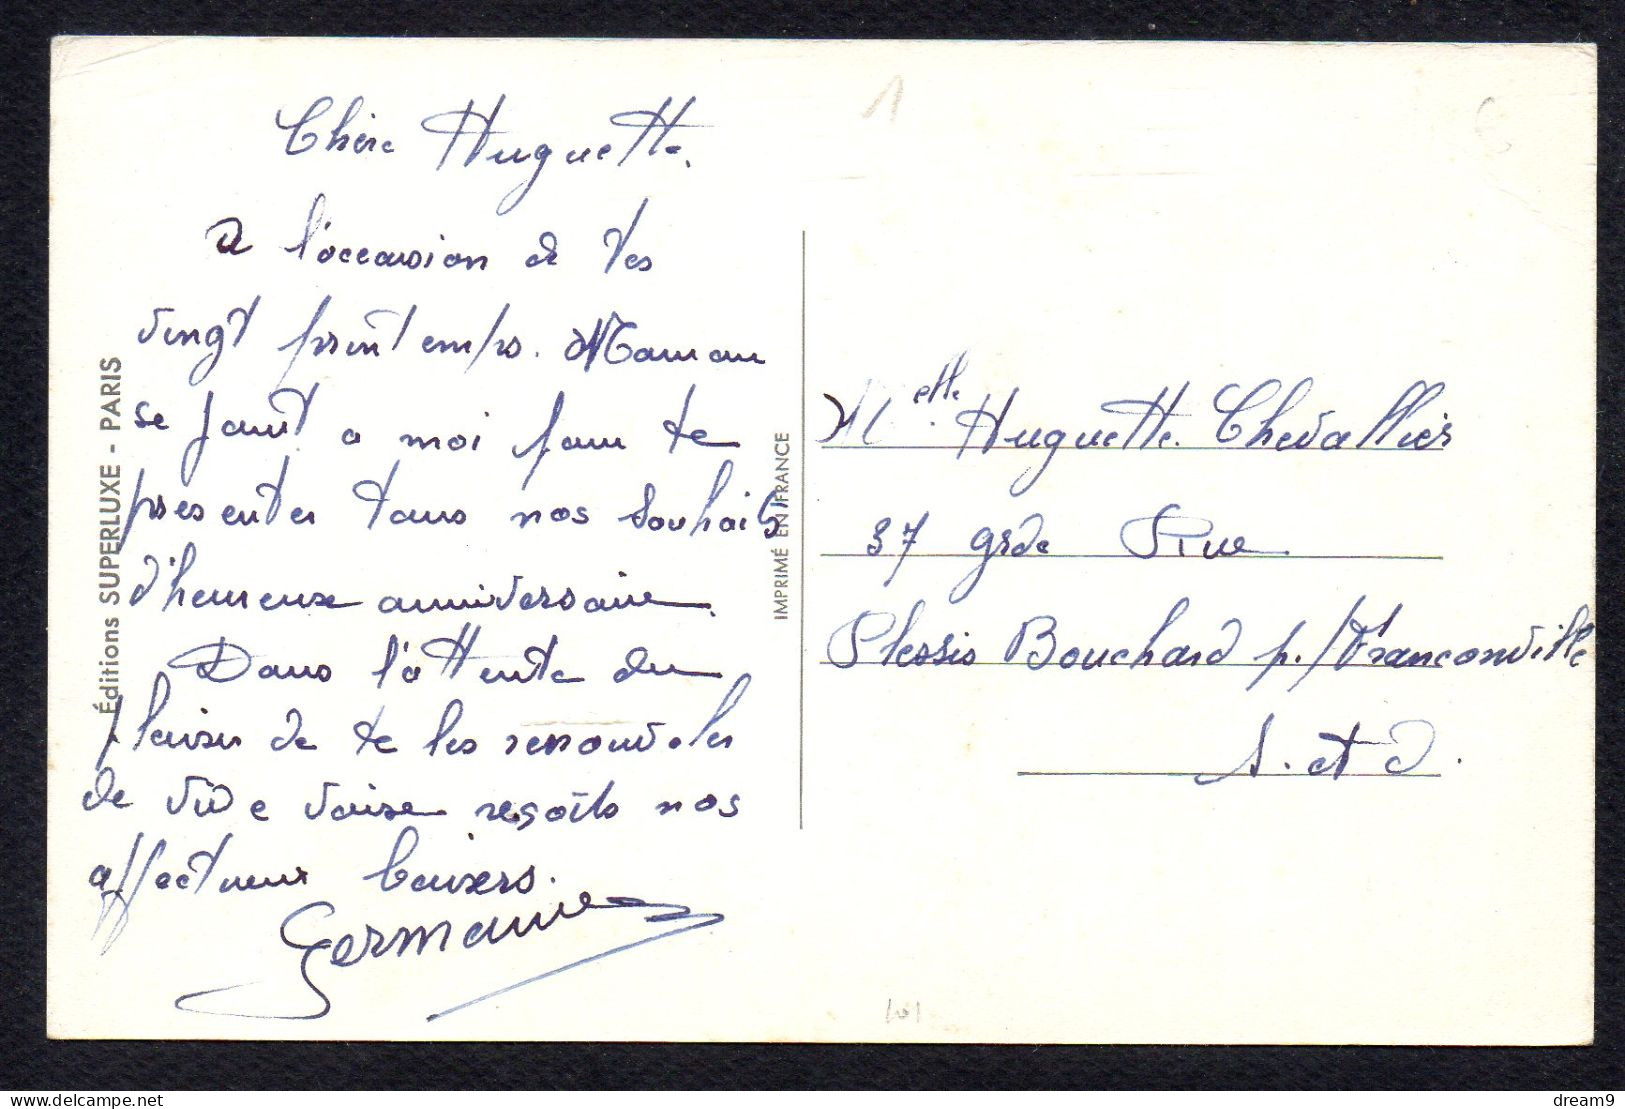 Chère Huguette.
A l'occasion de tes
vingt printemps. Maman
se joint a moi pour te
presenter tous nos souhaits
d'heureuse anniversaire.
Dans l'attente du
plaisir de te les renouveler
de vive voix reçoits nos
affectueux baisers.
Germaine
Éditions SUPERLUXE - PARIS
IMPRIMÉ EN FRANCE
1
Melle. Huguette Chevallier
37 grde Rue
Plessis Bouchard p./Franconville
S. et O.
www.delcampe.net
dream9